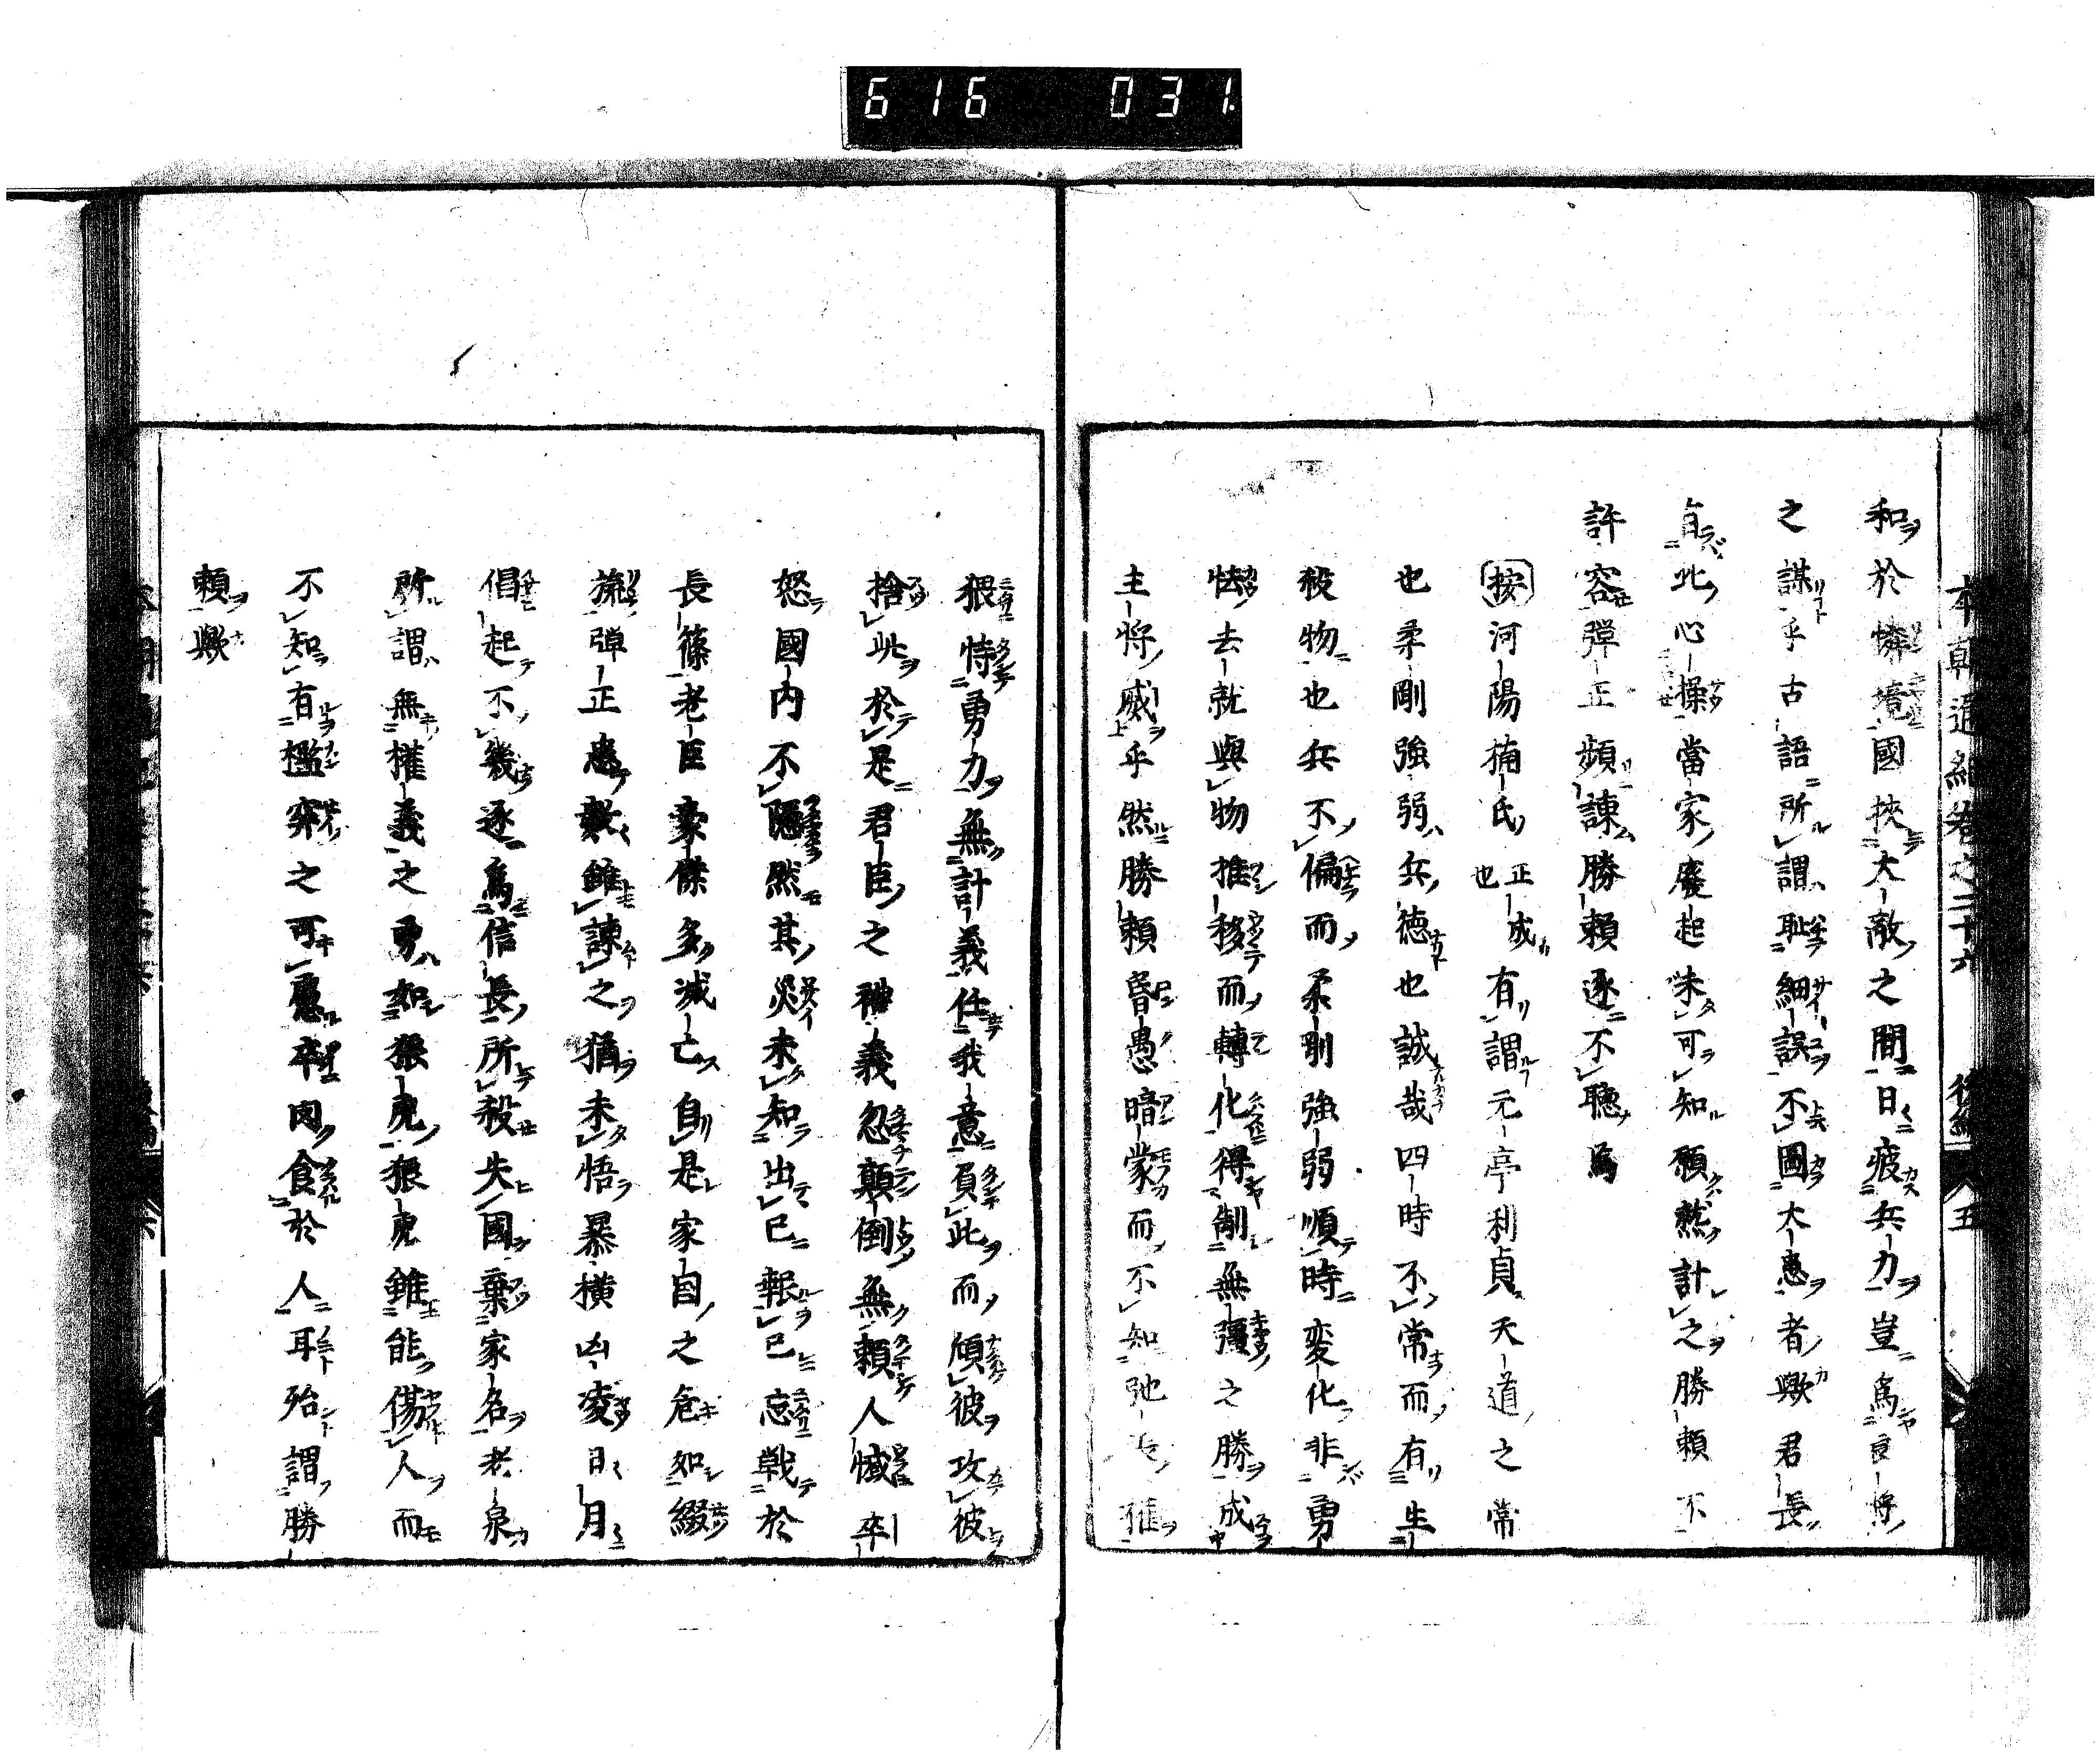 616 031
本朝通紀卷之二十六 後編 五
和於憐境國挾大敵之間日疲兵力豈爲良將
之謀乎古語所謂耻細誤不圖大惠者歟君長
有此心操當家廢起未可知願熬計之勝頼不
許容彈正頻諌勝頼逐不聽爲
按河陽楠氏正成也有謂元亭利貞天道之常
也柔剛強弱兵德也誠哉四時不常而有生
殺物也兵不偏而柔剛強弱順時変化非勇
怯去就與物推移而轉化得制無彊之勝成
主將威乎然勝頼昏愚暗蒙而不知弛
猥恃勇力無計義任我意負此而傾彼攻彼
捨此於是君臣之禮義忽顛倒無頼人慽卒
怒國内不隱然其災未知出已報已忘戦於
長篠老臣豪傑多滅亡自是家自之危如綴
旒彈正患歎雖諌之猶未悟暴横凶凌日月
倡起不幾逐爲信長所殺失國棄家名老泉
所謂無權義之勇如狠虎狠虎雖能傷人而
不知有檻穽之可憂卒肉食於人耳殆謂勝
頼歟